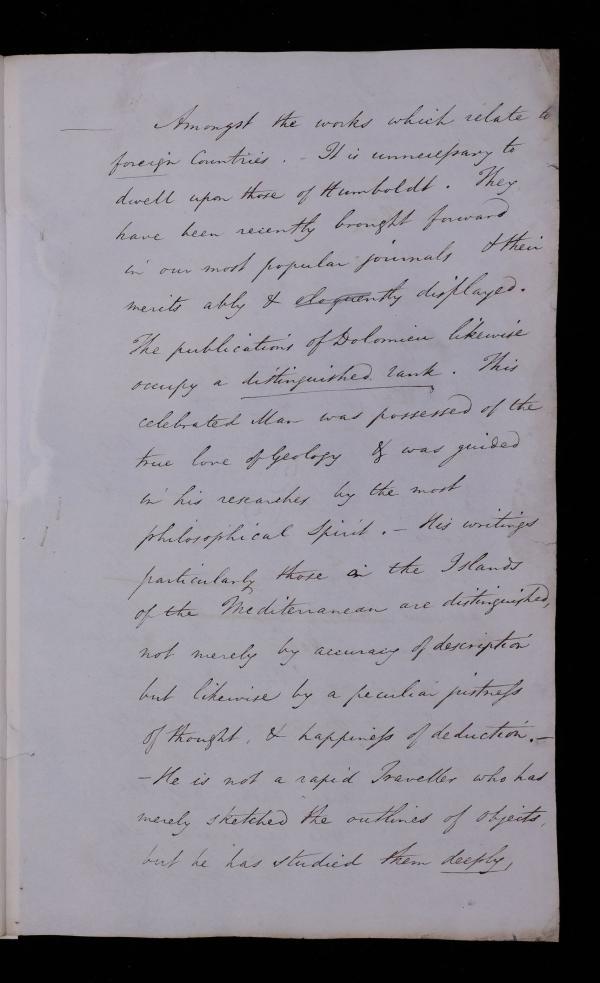 Amongst the works which relate to
foreign Countries. - It is unnecessary to
dwell upon those of Humboldt. They
have been recently brought forward
in our most popular journals & their
merits ably & eloquently displayed.
The publications of Dolomieu likewise
occupy a distinguished rank. This
celebrated Man was possessed of the
true love of Geology & was guided
in his researches by the most
philosophical Spirit. - His writings
particularly those on the Islands
of the Mediterranean are distinguished,
not merely by accuracy of description
but likewise by a peculiar justness
of thought, & happiness of deduction. -
- He is not a rapid Traveller who has
merely sketched the outlines of objects,
but he has studied them deeply,